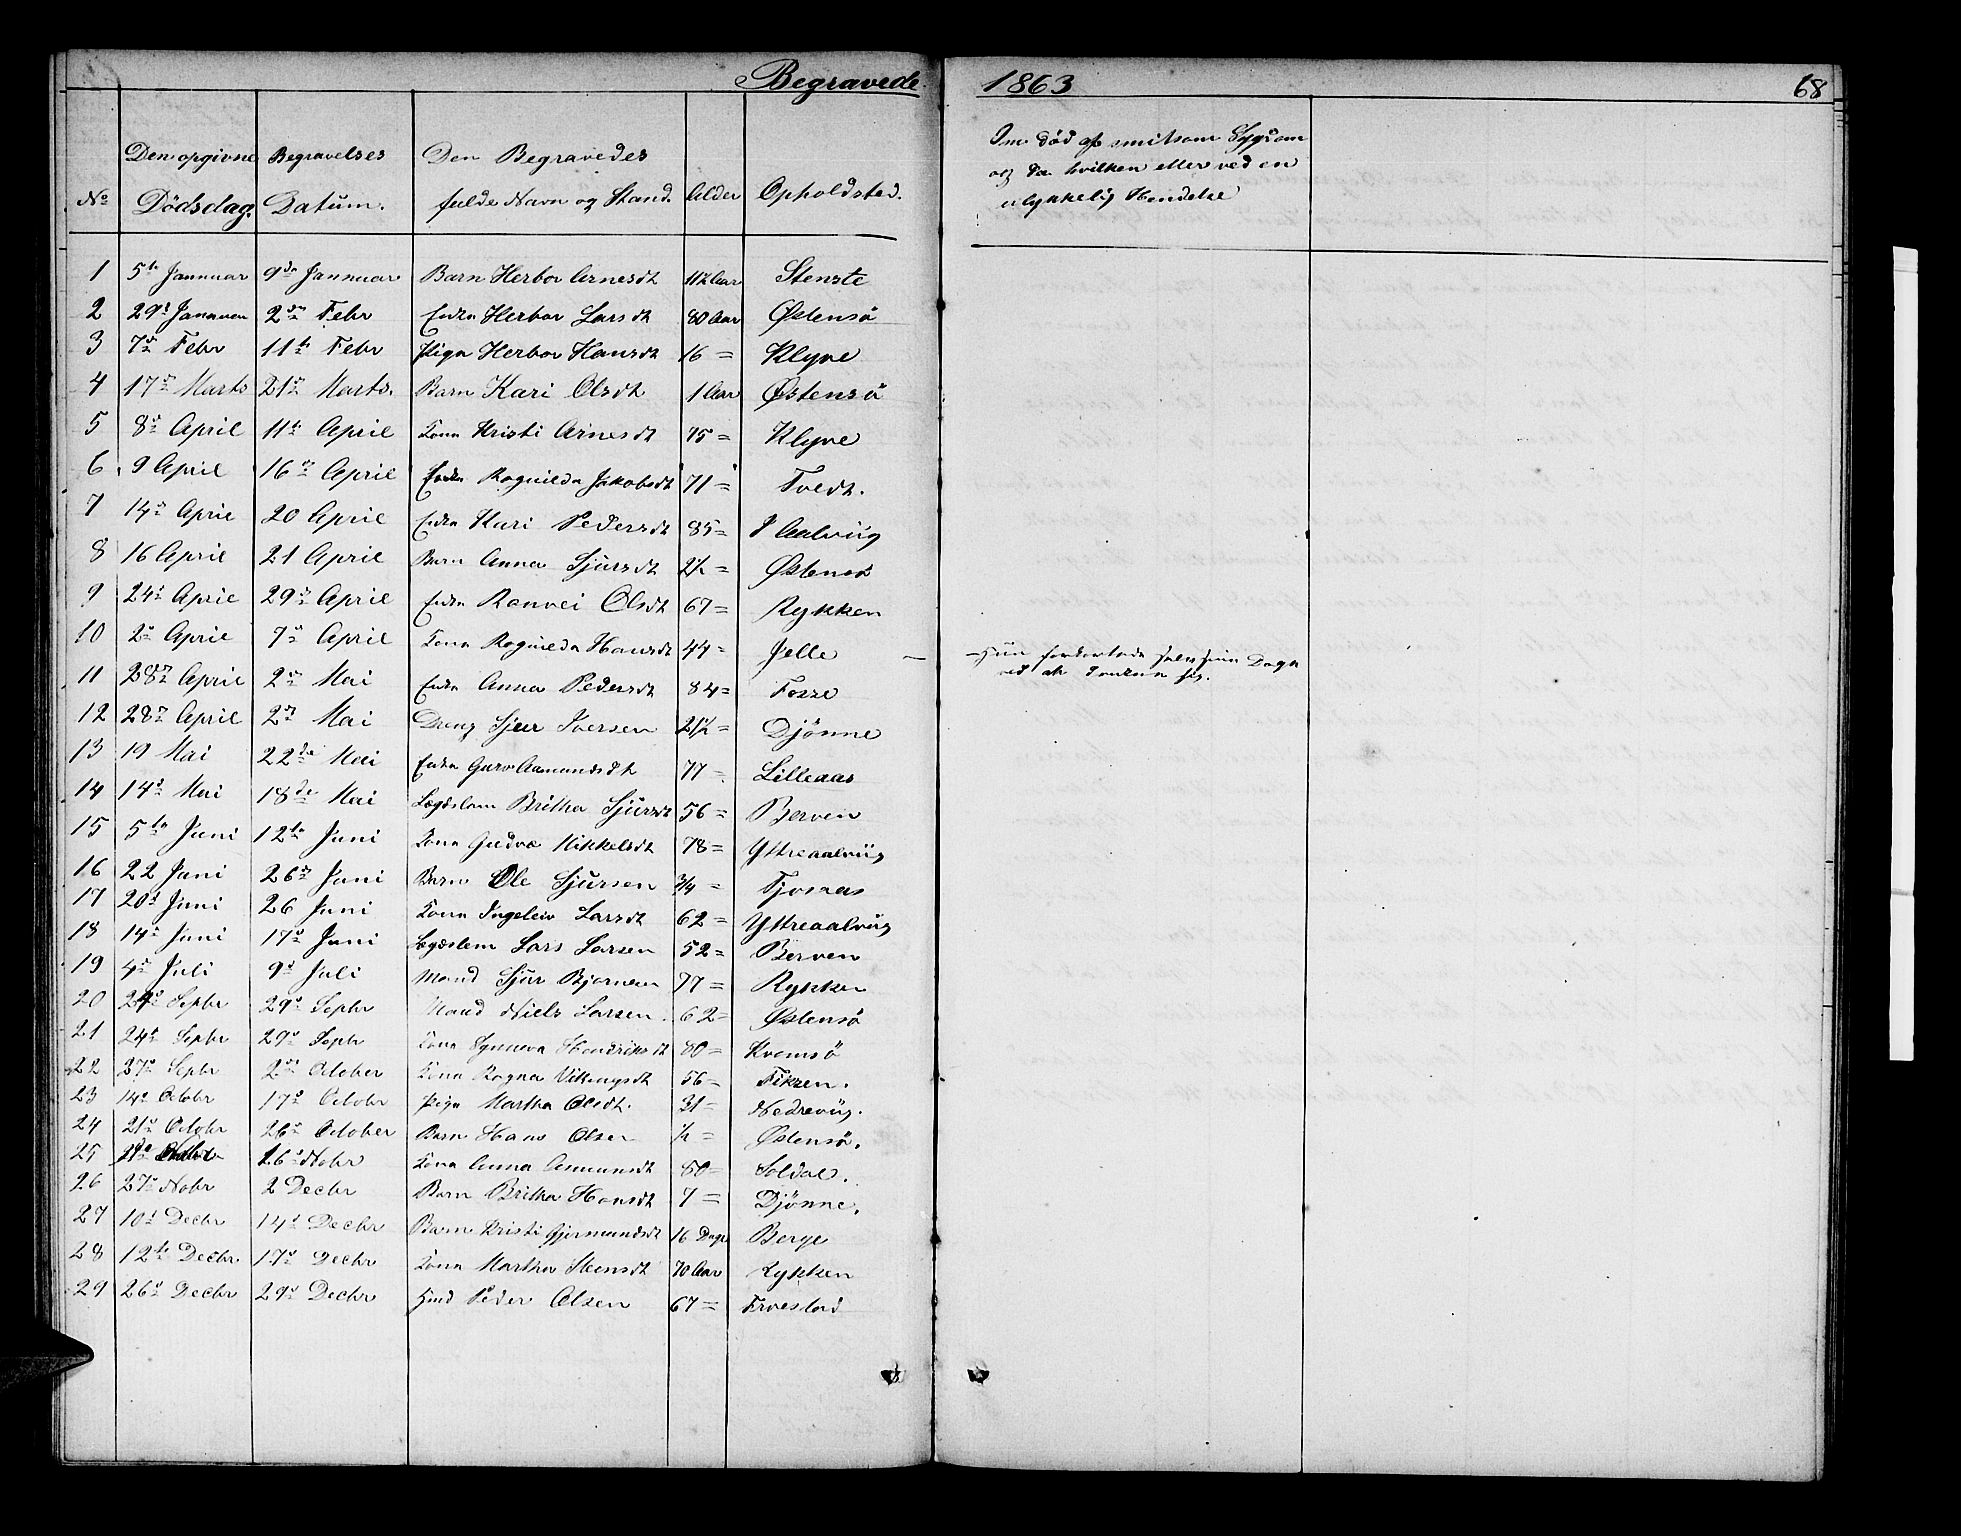 Begravede 1863 68
No Den opgivne Dödsdag. Begravelses Datum. Den Begravedes fulde Navn og Stand. Alder Opholdsted. Om död af smitsom Sygdom og da hvilken eller ved en ulykkelig Hendelse
1 5te Jannuar 9de Jannuar Barn Herbor Arnesdt 11½ Aar Stenstø
2 29d 2den Febr Enka Herbor Larsdt 80 Aar Østensö
3 7de Febr 11te Febr Piga Herbor Hansdt 16 = Klyve
4 17de Marts 21de Marts. Barn Kari Olsdt 1 Aar Østensö
5 8de April 11te April Kona Kristi Arnesdt 75 = Klyve
6 9 April 16de April Enka Rognilda Jakobsdt 71 = Tvedt.
7 14de April 20 April Enka Kari Pedersdt 85 = Aalviig
8 16 April 21 April Barn Anna Sjursdt 2½ = Østensö
9 24d April 29de April Enka Ranvei Olsdt 67 = Rykken
10 2de April 7de April Kona Rognilda Hansdt 44 = Jelle — Hun sine Dage ved at sig.
11 28de April 2den Mai Enka Anna Pedersdt 84 = Fosse
12 28de April 2den Mai Dreng Sjur Iversen 21½ = Djönne
13 19 Mai 22de Mai Enka Guro Aamundsdt 77 = Lilleaas
14 14d Mai 18de Mai Lægdslem Britha Sjursdt 56 = Berven
15 5te Juni 12te Juni Kona Gudve Mikkelsdt 78 = Yttreaalviig
16 22 Juni 26de Juni Barn Ole Sjursen 3/4 = Tjosaas
17 20d Juni 26 Juni Kona Ingeleiv Larsdt 62 = Yttreaalviig
18 14de Juni 17de Juni Lægdslem Lars Larsen 52 = Berven
19 4de Juli 9d Juli Mand Sjur Bjørnsen 77 = Rykken
20 24d Septbr 29d Septbr Mand Niels Larsen. 62 = Østensö
21 24d Septbr 29d Septbr Kona Synneva Hendriksdt 80 = Kvamsö
22 27d Septbr 2den October Kona Ragna Vikingsdt 56 = Fikzen.
23 14d Octobr 17d Octobr Piga Martha Olsdt. 31 = Nedreviig.
24 21d Octobr 26d October Barn Hans Olsen ½ = Østensö.
25 26d Nobr Kona Anna Aamundsdt 80 = Soldal.
26 27d Nobr 2 Decbr Barn Britha Hansdt 7 = Djönne.
27 10d Decbr 14d Decbr Barn Kristi Gjermundsdt 16 Dage Berge
28 12te Decbr 17d Decbr Kona Martha Stensdt 70 Aar Rykken
29 26d Decbr 29d Decbr Peder Olsen 67 =